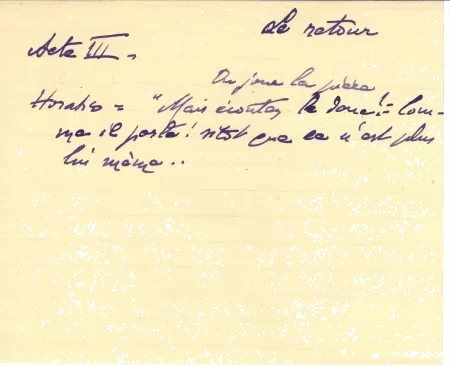 Le retour
Acte III =
On joue la pièce
Horatio = "Mais écoutez le donc! = Com-
me il parle! sitôt que ce n'est plus
lui même..